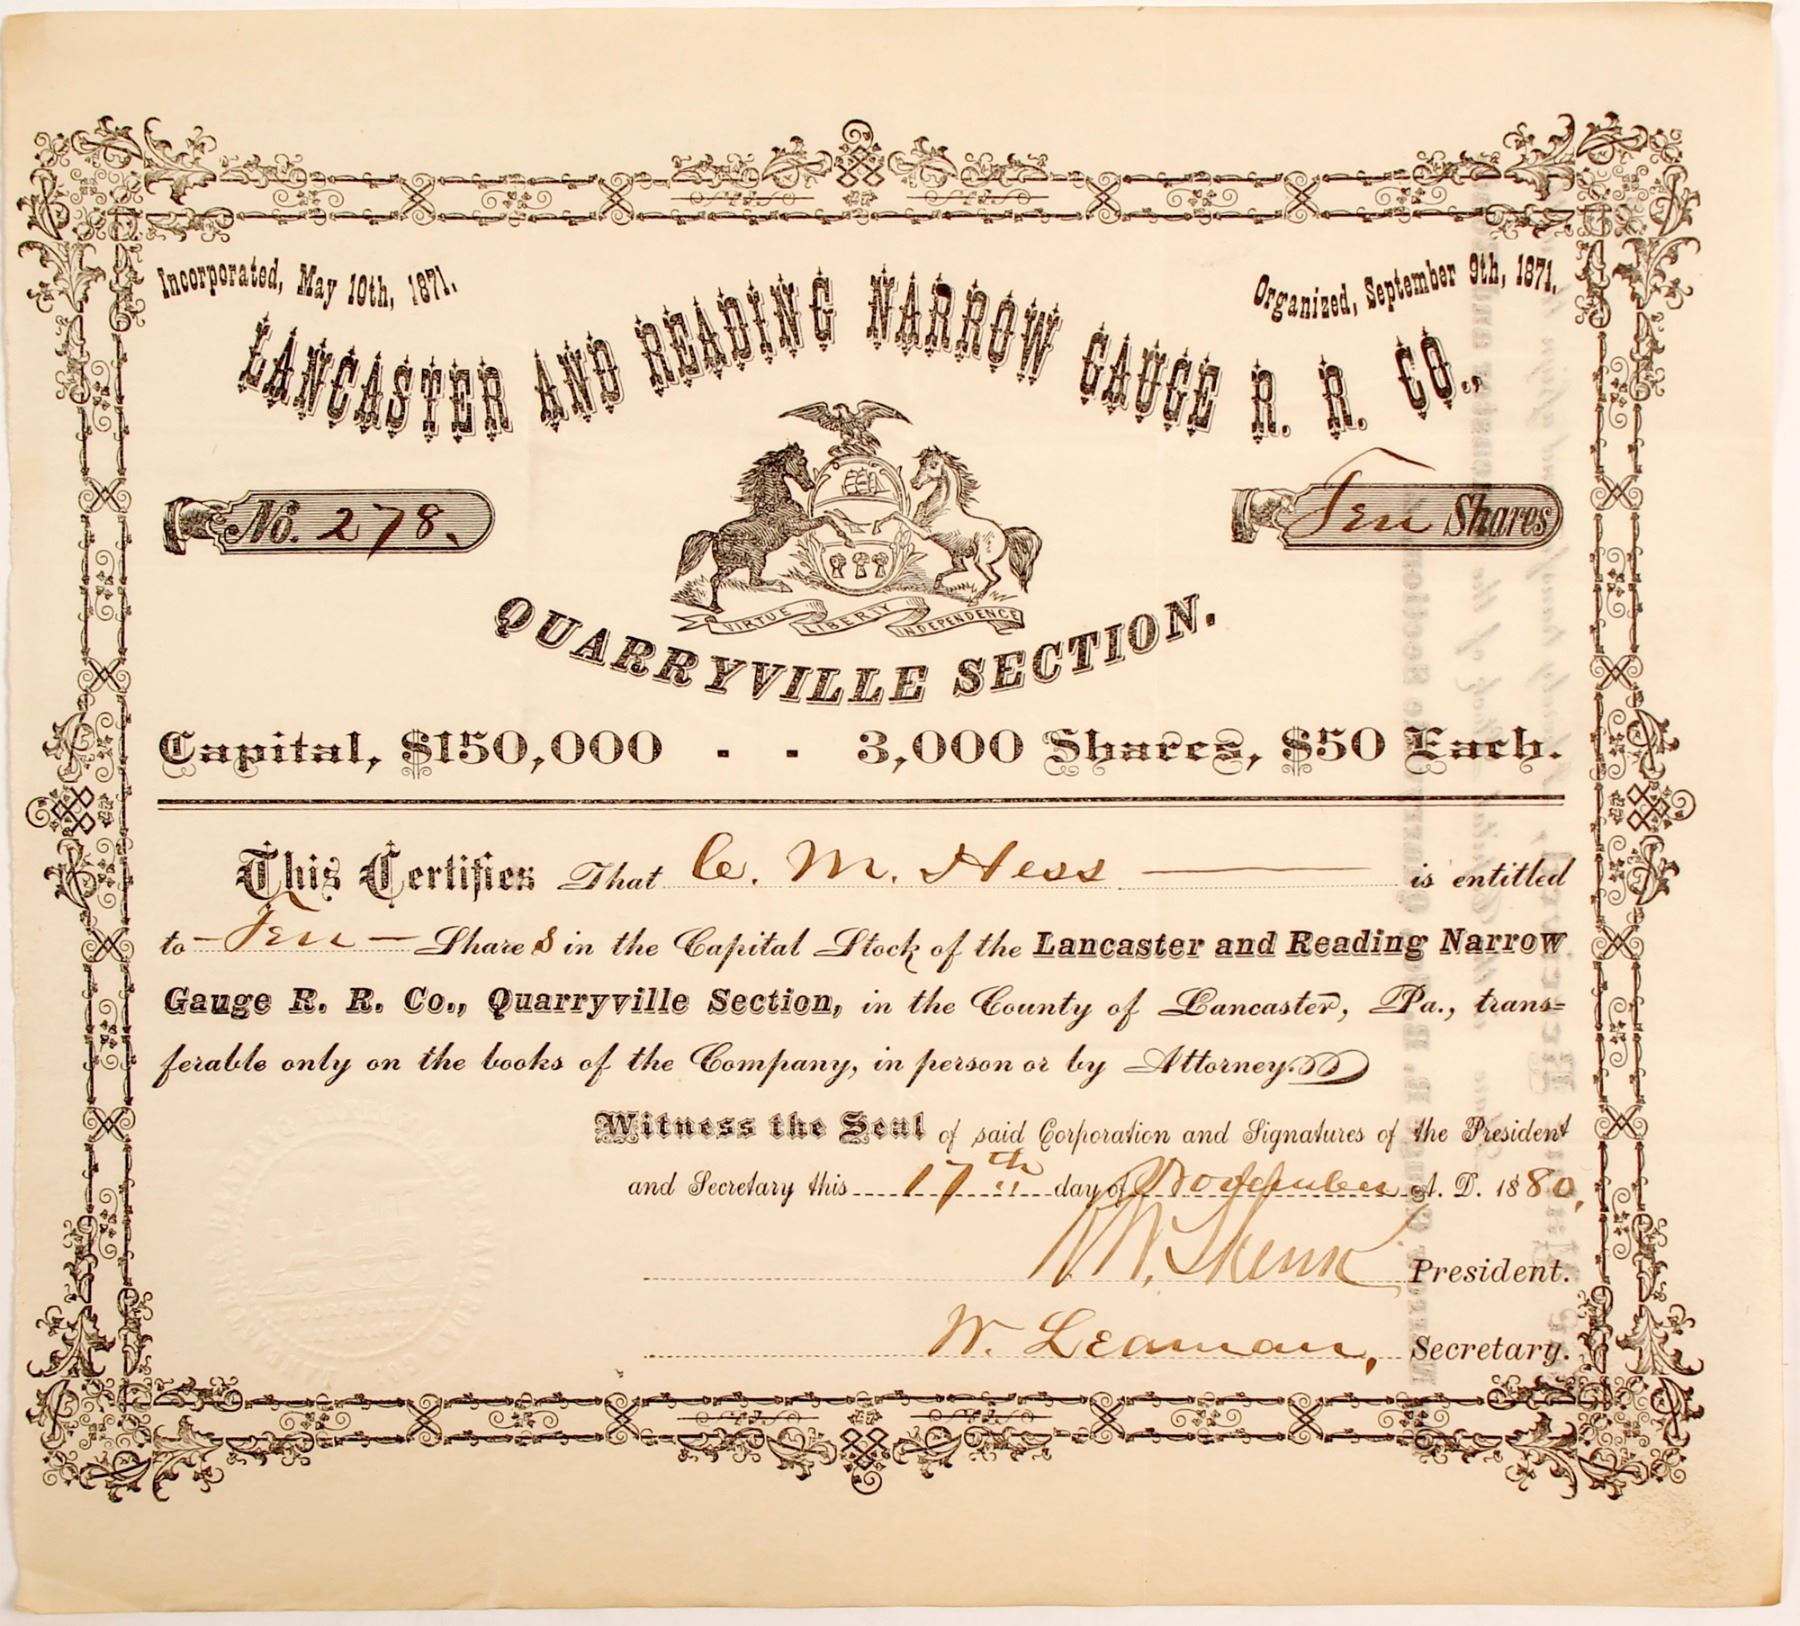 Incorporated, May 10th, 1871.
Organized, September 9th, 1871.
LANCASTER AND READING NARROW GAUGE R. R. CO.,
No. 278.
Ten Shares
VIRTUE LIBERTY INDEPENDENCE
QUARRYVILLE SECTION.
Capital, $150,000 - - 3,000 Shares, $50 Each.
This Certifies That C. M. Hess is entitled
to - Ten - Share s in the Capital Stock of the Lancaster and Reading Narrow
Gauge R. R. Co., Quarryville Section, in the County of Lancaster, Pa., trans=
ferable only on the books of the Company, in person or by Attorney.
Witness the Seal of said Corporation and Signatures of the President
and Secretary this 17th day of November A. D. 1880,
Shenk President.
W. Leaman, Secretary.